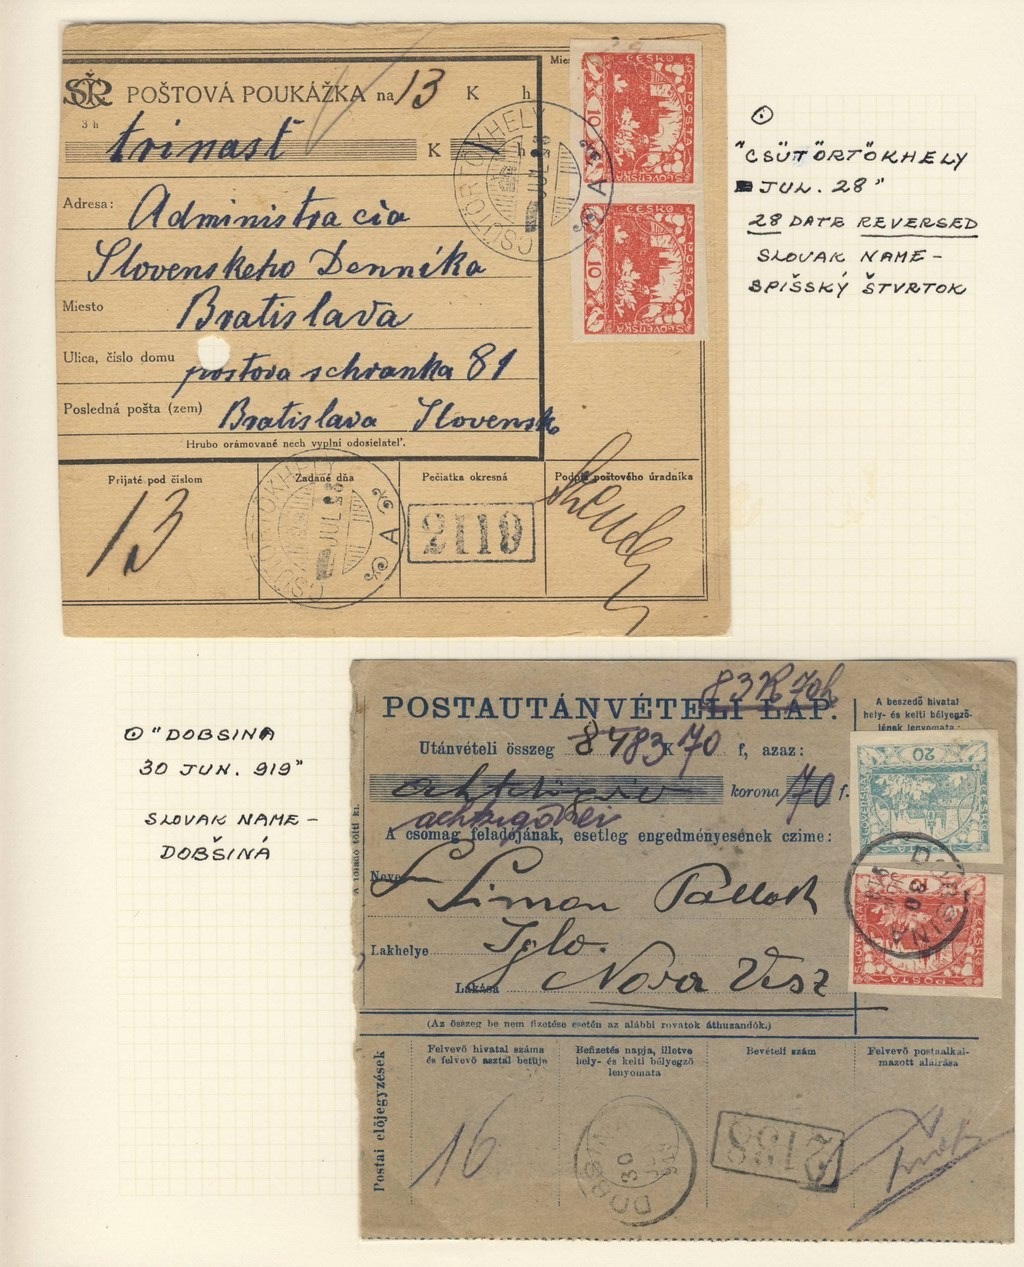 SŘ
POŠTOVÁ POUKÁŽKA na 13 K h
3 h
trinast K h
Adresa: Administracia
Slovenskeho Dennika
Miesto Bratislava
Ulica, číslo domu postova schranka 81
Posledná pošta (zem) Bratislava Slovensk
Hrubo orámované nech vyplní odosielateľ.
Prijaté pod číslom
13
Zadané dňa
Pečiatka okresná
2110
Podpis poštového úradníka
ČESKO
POSTA
SLOVENSKÁ
10
ČESKO
POSTA
SLOVENSKÁ
10
CSÜTÖRTÖKHELY
JUL 28
A
CSÜTÖRTÖKHELY
JUL 28
A
"CSÜTÖRTÖKHELY
JUL. 28"
28 DATE REVERSED
SLOVAK NAME-
SPIŠSKÝ ŠTVRTOK
"DOBSINA
30 JUN. 919"
SLOVAK NAME-
DOBŠINÁ
83K 70h
POSTAUTÁNVÉTELI LAP.
Utánvételi összeg 83 K 70 f, azaz:
korona 70 f.
A csomag feladójának, esetleg engedményesének czime:
Neve Simon Pollak
Lakhelye Iglo.
Lakása Nova Vesz
(Az összeg be nem fizetése esetén az alábbi rovatok áthuzandók.)
A beszedő hivatal
hely- és kelti bélyegző-
jének lenyomata:
20
POSTA
ČESKO
DOBSINA
30
Postai előjegyzések
Felvevő hivatal száma
és felvevő asztal betüje
16
Befizetés napja, illetve
hely- és kelti bélyegző
lenyomata
DOBSINA
30
Bevételi szám
2188
Felvevő postaalkal-
mazott aláirása